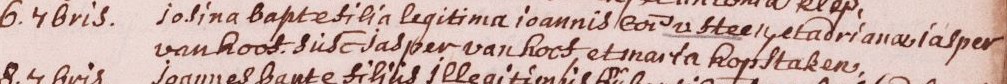 6. 7bris. josina bapte filia legitima ioannis Cor v steen et adrianae iasper
van hoof. susc Jasper van hoof et maria hopstaken,
8. 7bris joannes bapte filius illegitimus